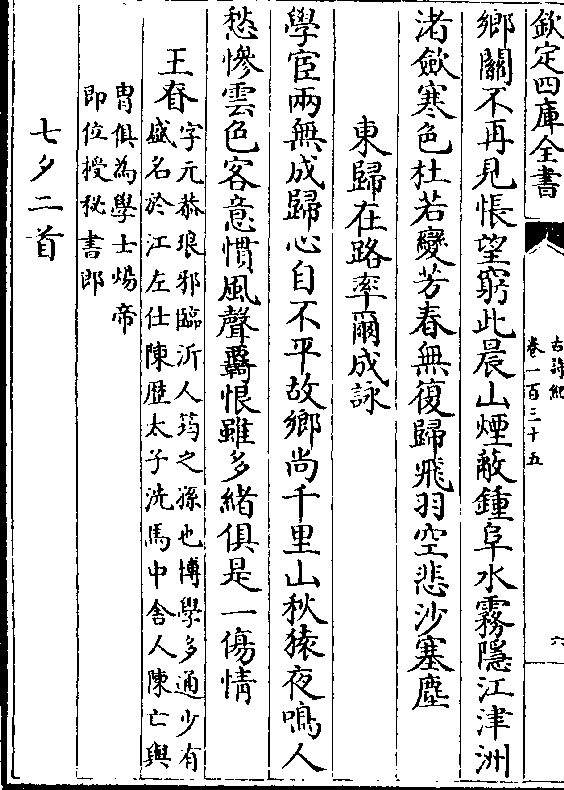 欽定四庫全書
古詩紀
卷一百三十五
六
鄉關不再見悵望窮此晨山煙蔽鍾阜水霧隱江津洲
渚斂寒色杜若變芳春無復歸飛羽空悲沙塞塵
東歸在路率爾成詠
學宦兩無成歸心自不平故鄉尚千里山秋猿夜鳴人
愁慘雲色客意慣風聲羈恨雖多緒俱是一傷情
王眘
字元恭琅邪臨沂人筠之孫也博學多通少有
盛名於江左仕陳歴太子洗馬中舍人陳亡與
胄俱為學士煬帝
即位授秘書郎
七夕二首